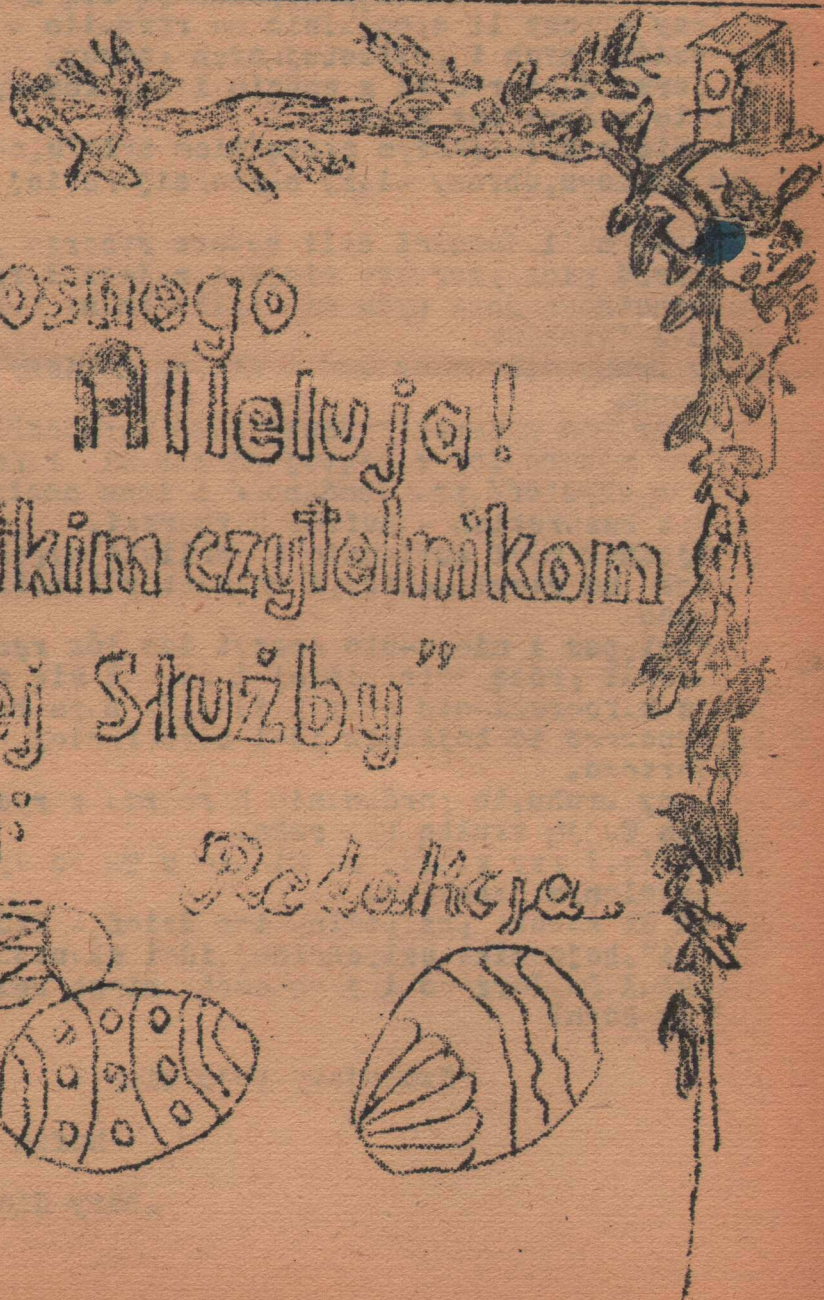 osnego
Alleluja!
tkim czytelnikom
ej Służby”
Redakcja